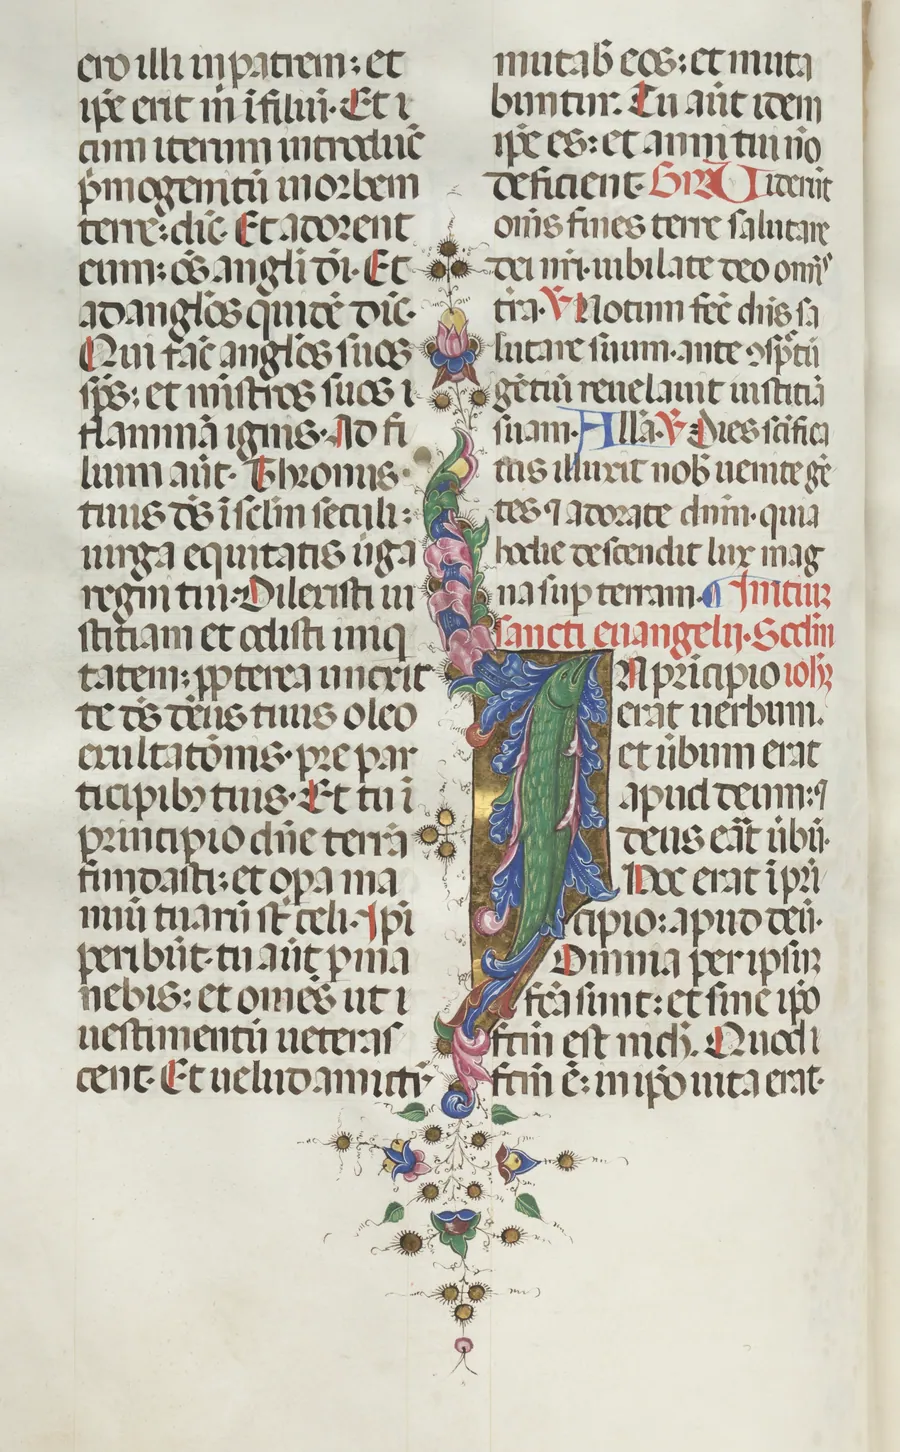 ero illi in patrem: et
ip̄e erit m̄ i filiū. Et
cum iterum introduc̄
p̄mogenitū in orbem
terre: dic̄. Et adorent
eum: oēs angli dī. Et
ad anglōs quidē dic̄.
Qui fac̄ anglōs suos
sps̄: et mīstros suos i
flammā ignis. Ad fi
lium aūt. Thronus.
tuus dēs ī sclm̄ seculi:
uirga equitatis ūga
regni tui. Dilexisti iu
stitiam et odisti iniq
tatem: ꝓpterea unxit
te dēs dēus tuus oleo
exultatōnis. pre par
ticipibꝫ tuis. Et tu ī
principio dn̄e terrā
fundasti: et opa ma
nuū tuarū st̄ celi. Ipī
peribūt. tu aūt pma
nebis: et omēs ut
uestimentū ueteras
cent. Et uelud amictū
mutab̄ eos: et muta
buntur. Tu aūt idem
ip̄e es: et anni tui nō
deficient. Gra Uiderūt
om̄s fines terre salutare
dei nr̄i. iubilate deo omīs
tr̄a. V Notum fēc dn̄s sa
lutare suum. ante ꝯspc̄tū
gētiū reuelauit iustitiā
suam. Allā. V Dies sc̄ifica
tus illuxit nob̄ uenite gē
tes ⁊ adorate dnm̄. quia
hodie descendit lux mag
na sup terram. Initiuꝫ
sancti euangelij. Scdm̄
IN pricipio ioħꝫ
erat uerbum.
et ūbum erat
apud deum: ⁊
deus erāt ūbū.
Hoc erat ī pri
cipio: apud deū.
Omnia per ipsuꝫ
fc̄a sunt: et sine ip̄o
fctm̄ est nich̄. Quod
fctm̄ ē: in ip̄o uita erat.